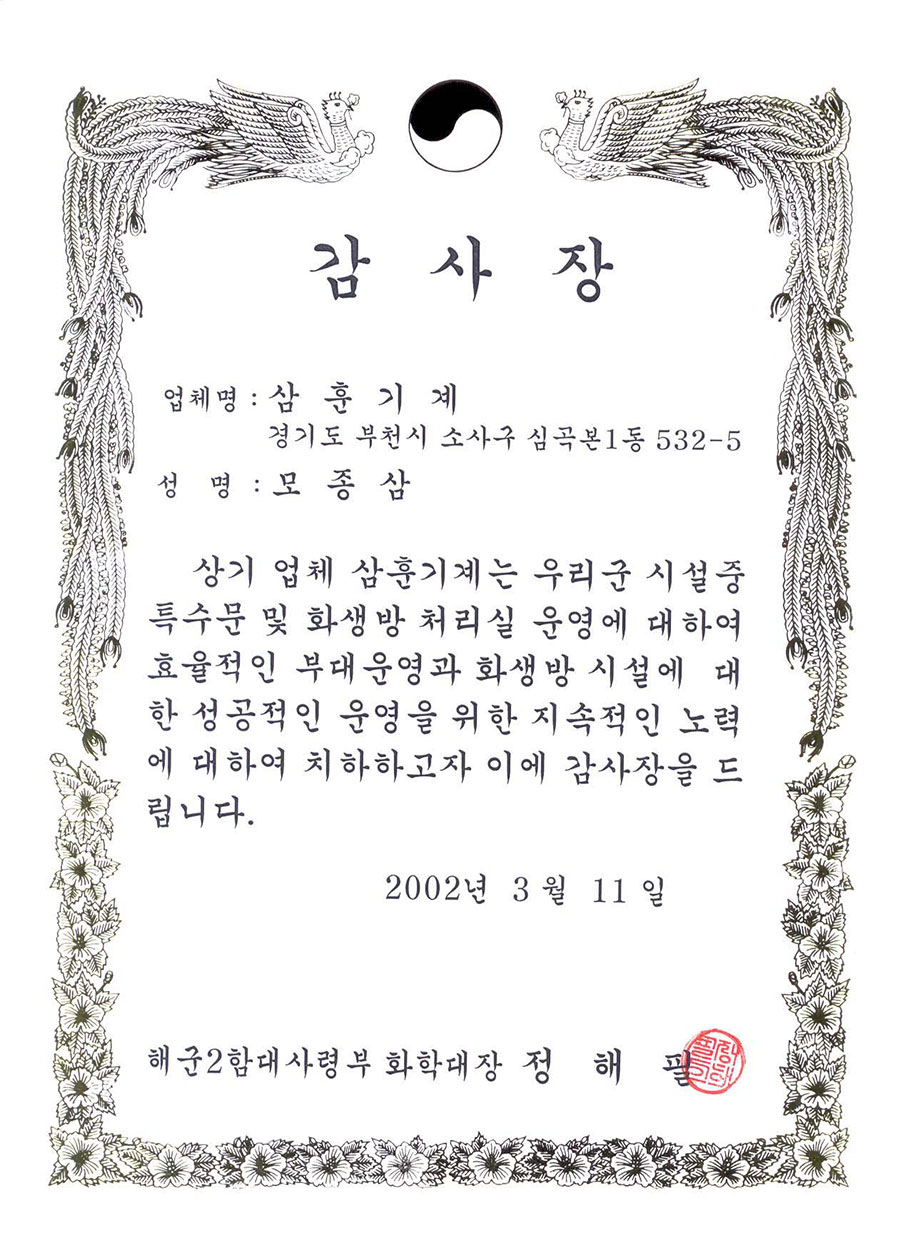 감 사 장
업체명 : 삼 훈 기 계
경기도 부천시 소사구 심곡본1동 532-5
성 명 : 모 종 삼
상기 업체 삼훈기계는 우리군 시설중
특수문 및 화생방 처리실 운영에 대하여
효율적인 부대운영과 화생방 시설에 대
한 성공적인 운영을 위한 지속적인 노력
에 대하여 치하하고자 이에 감사장을 드
립니다.
2002년 3월 11일
해군2함대사령부 화학대장 정 해 필